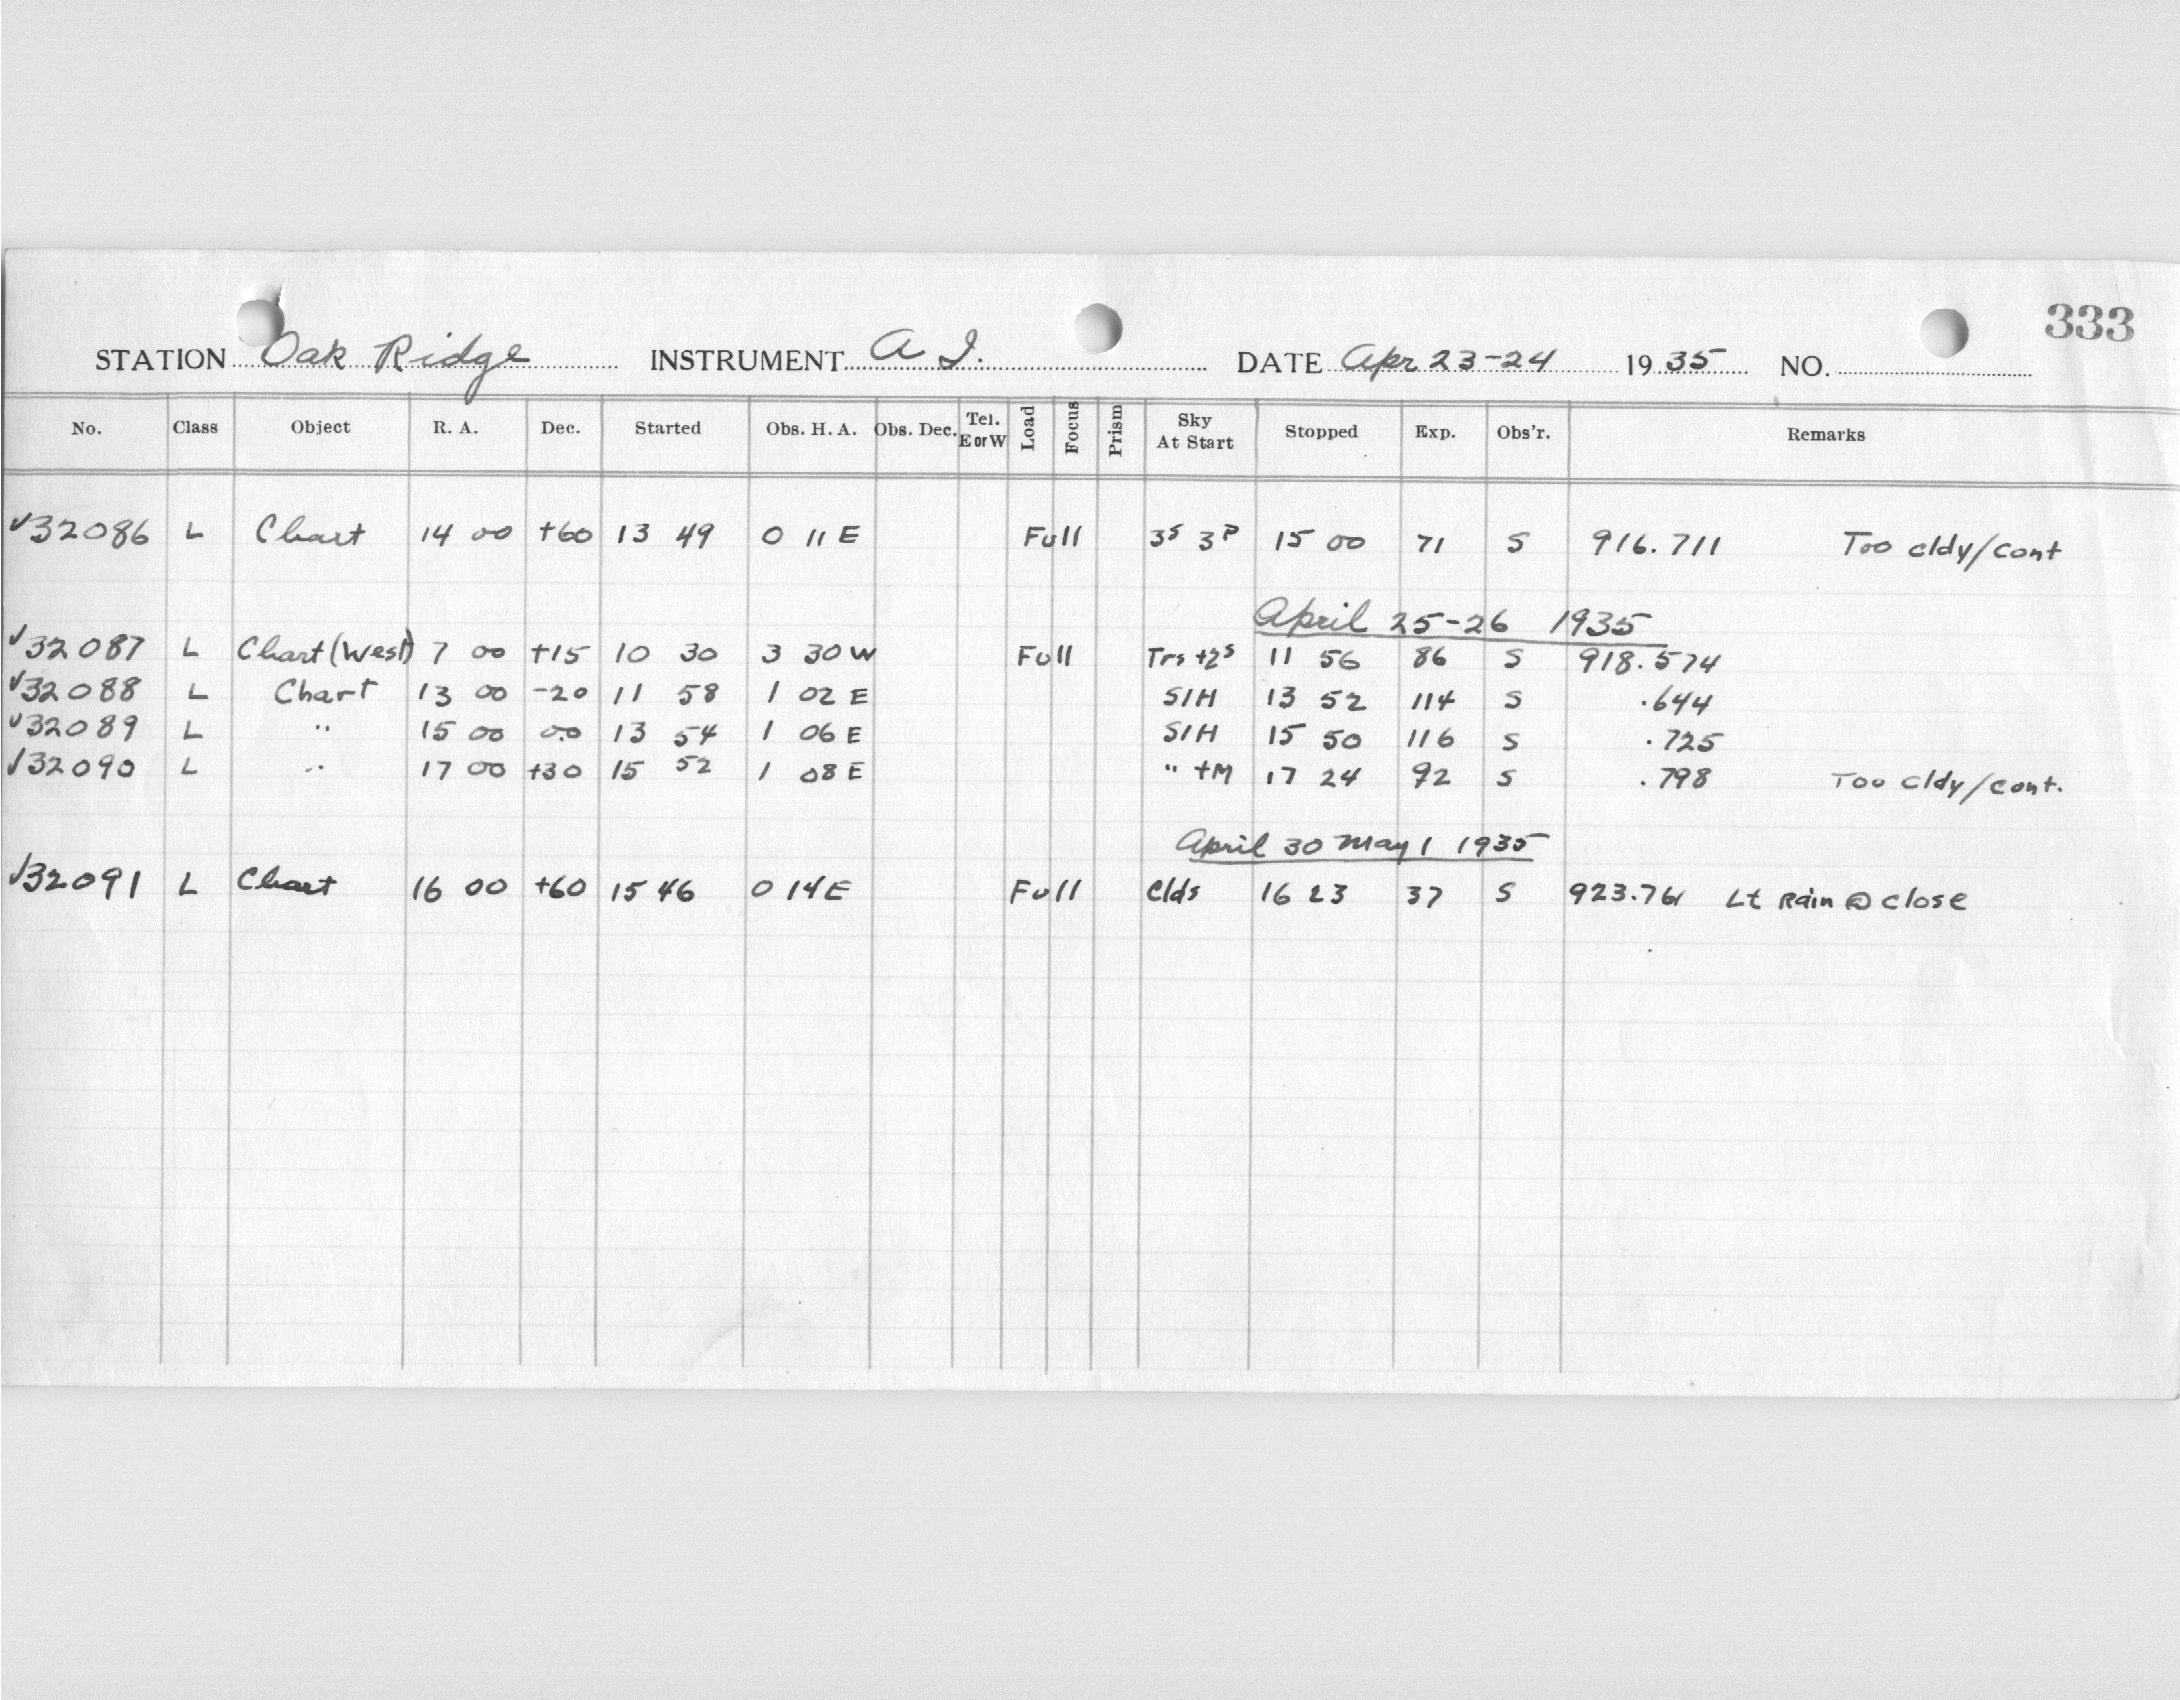 333
STATION Oak Ridge INSTRUMENT A I. DATE Apr 23-24 1935 NO.
No. Class Object R. A. Dec. Started Obs. H. A. Obs. Dec. Tel. E or W Load Focus Prism Sky At Start Stopped Exp. Obs'r. Remarks
✓32086 L Chart 14 00 +60 13 49 0 11 E Full 3ˢ 3ᴾ 15 00 71 S 916.711 Too cldy/cont
April 25-26 1935
✓32087 L Chart (West) 7 00 +15 10 30 3 30 W Full Trs +2ˢ 11 56 86 S 918.574
✓32088 L Chart 13 00 -20 11 58 1 02 E S/H 13 52 114 S .644
✓32089 L " 15 00 00 13 54 1 06 E S/H 15 50 116 S .725
✓32090 L " 17 00 +30 15 52 1 08 E " +M 17 24 92 S .798 Too cldy/cont.
April 30 May 1 1935
✓32091 L Chart 16 00 +60 15 46 0 14 E Full Clds 16 23 37 S 923.761 Lt Rain @ close